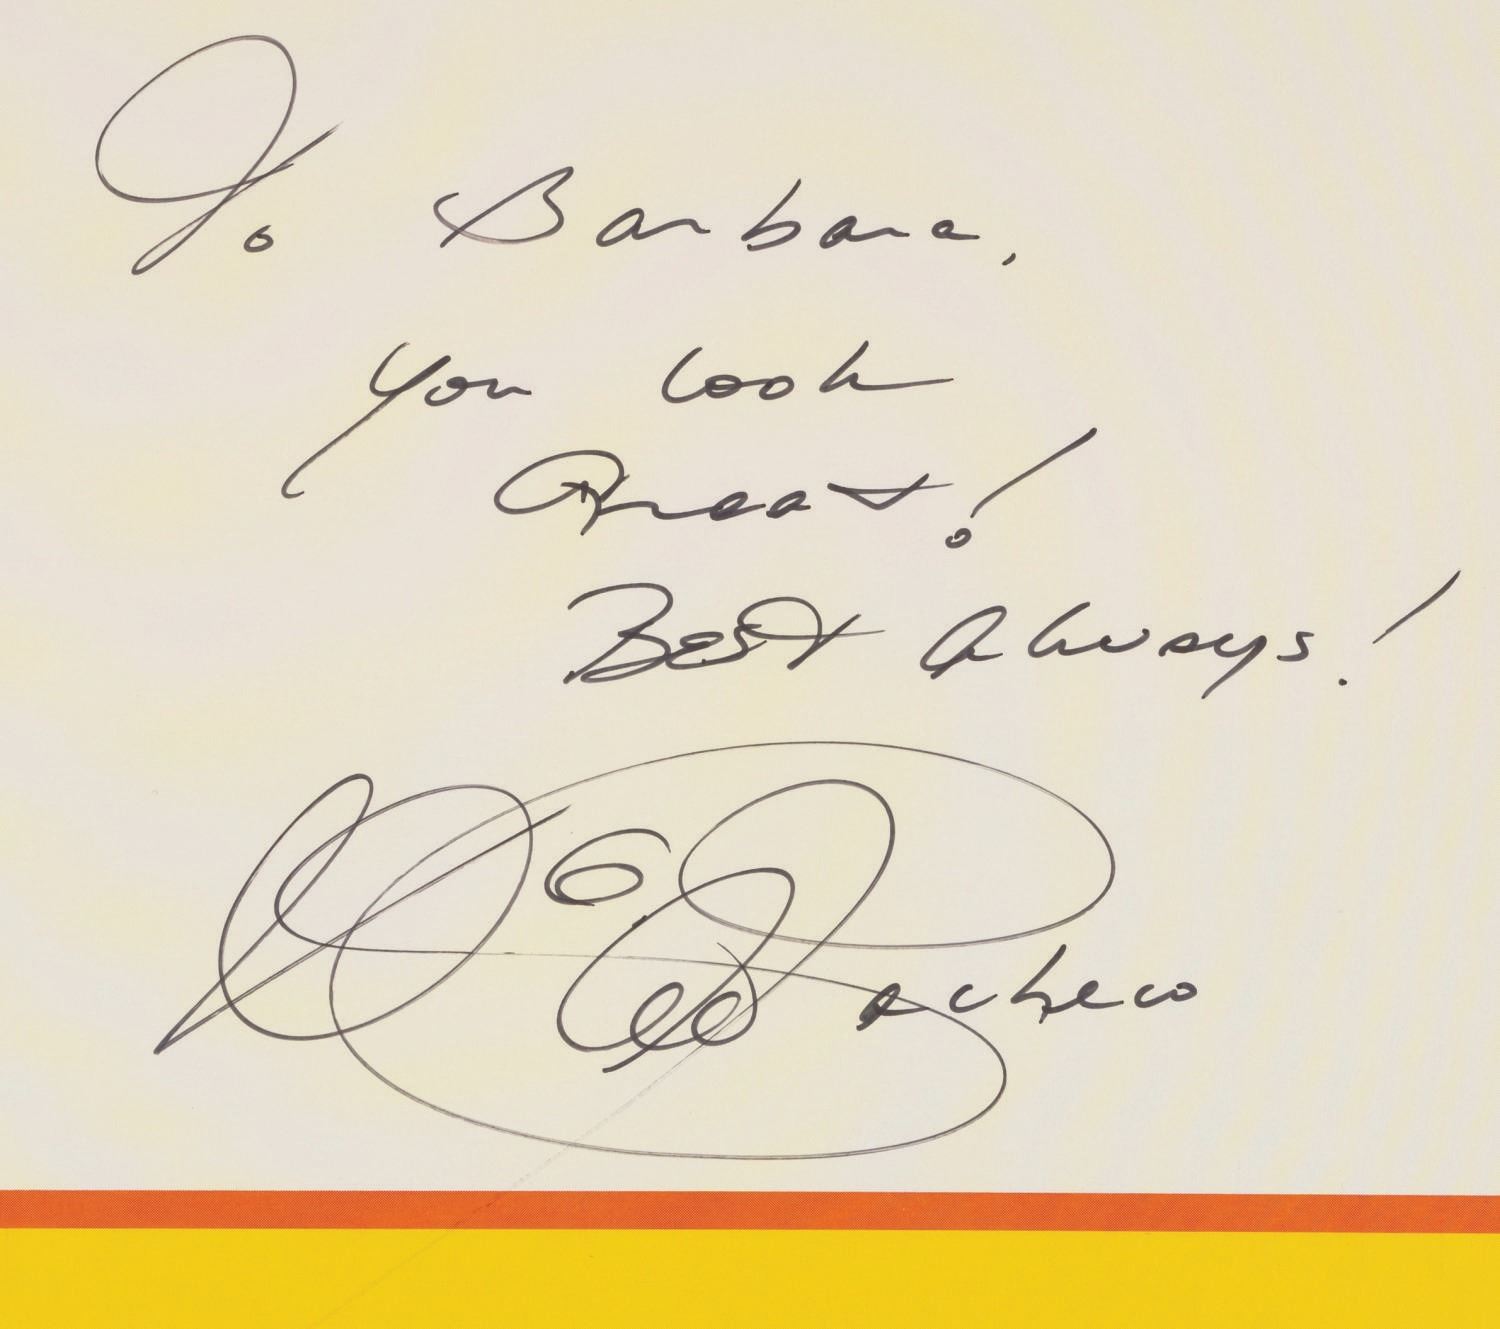 To Barbara,
You look
Great!
Best Always!
Pacheco